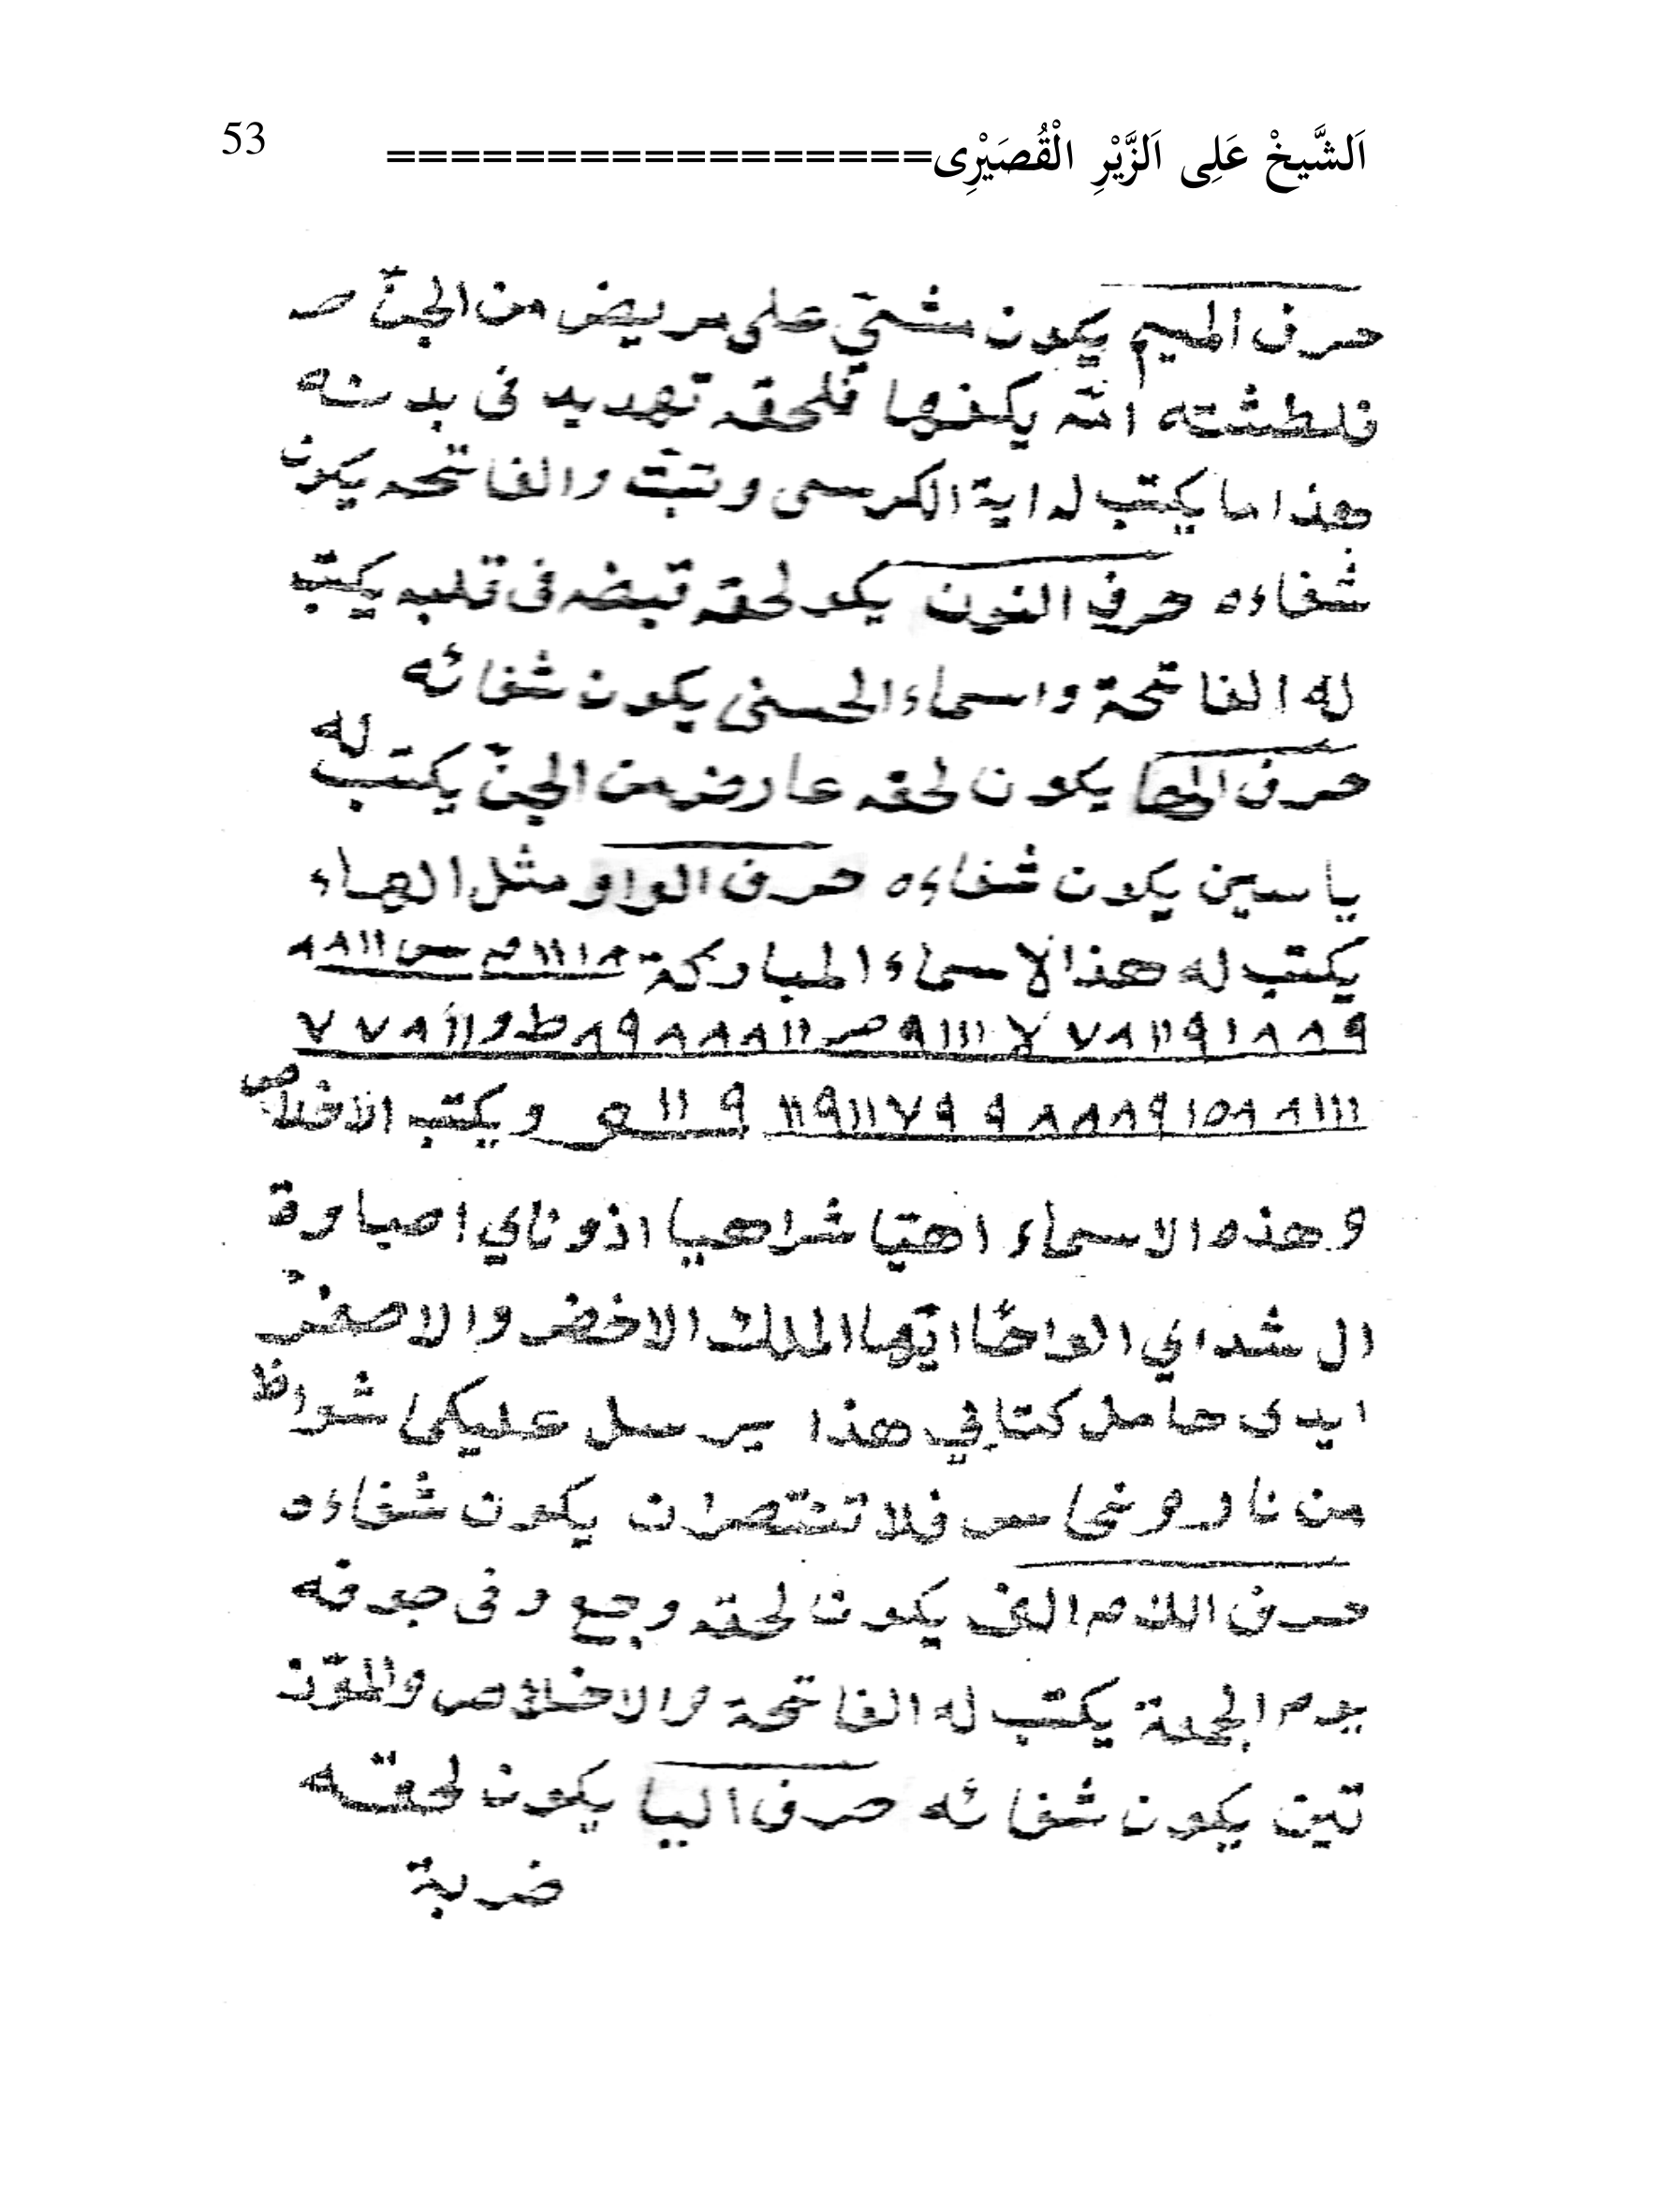 اَلشَّيخْ عَلِى اَلزَّيْرِ الْقُصَيْرِى================= 53
حرف الميم يكون مشتي على مريض من الجنّ
فلطشته يكنها تلحقه تهديد فى بدنه
هذا ما يكتب له اية الكرسى وتبّت والفاتحه يكون
شفاءه حرف النون يكو لحقه قبضه فى قلبه يكتب
له الفاتحة واسماء الحسنى يكون شفائه
حرف الها يكون لحقه عارض من الجنّ يكتب له
ياسين يكون شفاءه حرف الواو مثل الهاء
يكتب له هذا الاسماء المباركة
٩٨٨١٩١١٨٧ ٧ ١١١٩ ص ١١٨٨٨٩٨ ط و ١١٨٧٧
١١١٨٨٥١٩٨٨٨٩ ٩٧١١٩١١ ٩ ١١ ويكتب الاخلاص
وهذه الاسماء اهيّا شراهيا اذوناي اصباوة
ال شداي الواحًا ايّها الملك الاخضر والاصفر
ايدى حامل كتابي هذا يرسل عليكما شواظ
من نار ونحاس فلا تنتصران يكون شفاءه
حرف اللام الف يكون لحقه وجع وفى جوفه
يوم الجمعة يكتب له الفاتحة والاخلاص والمعّوذ
تين يكون شفائه حرف اليا يكون لحقته
ضربة